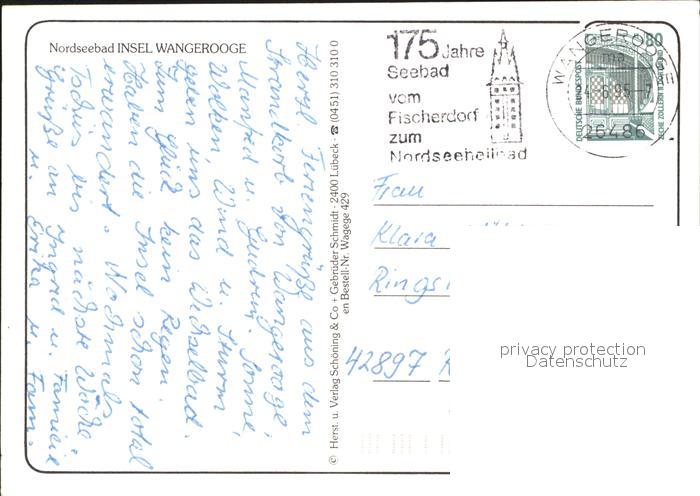 Nordseebad INSEL WANGEROOGE
Herzl. Feriengrüße aus dem
Strandkorb von Wangerooge,
Manfred u. Gudrun. Sonne,
Wolken, Wind u. Sturm
geben uns das Wechselbad.
Zum Glück kein Regen.
Haben die Insel schon total
umwandert. Nochmals
Tschüs bis nächste Woche.
Grüße an Ingrid u. Familie
u. Erika u. Fam.
© Herst. u. Verlag Schöning & Co + Gebrüder Schmidt · 2400 Lübeck · ☎ (0451) 310 310 0
en Bestell-Nr. Wagege 429
175 Jahre
Seebad
vom
Fischerdorf
zum
Nordseeheilbad
WANGEROOGE
26486
80
DEUTSCHE BUNDESPOST
ZECHE ZOLLERN II DORTMUND
Frau
Klara
Rings
42897 R
privacy protection
Datenschutz